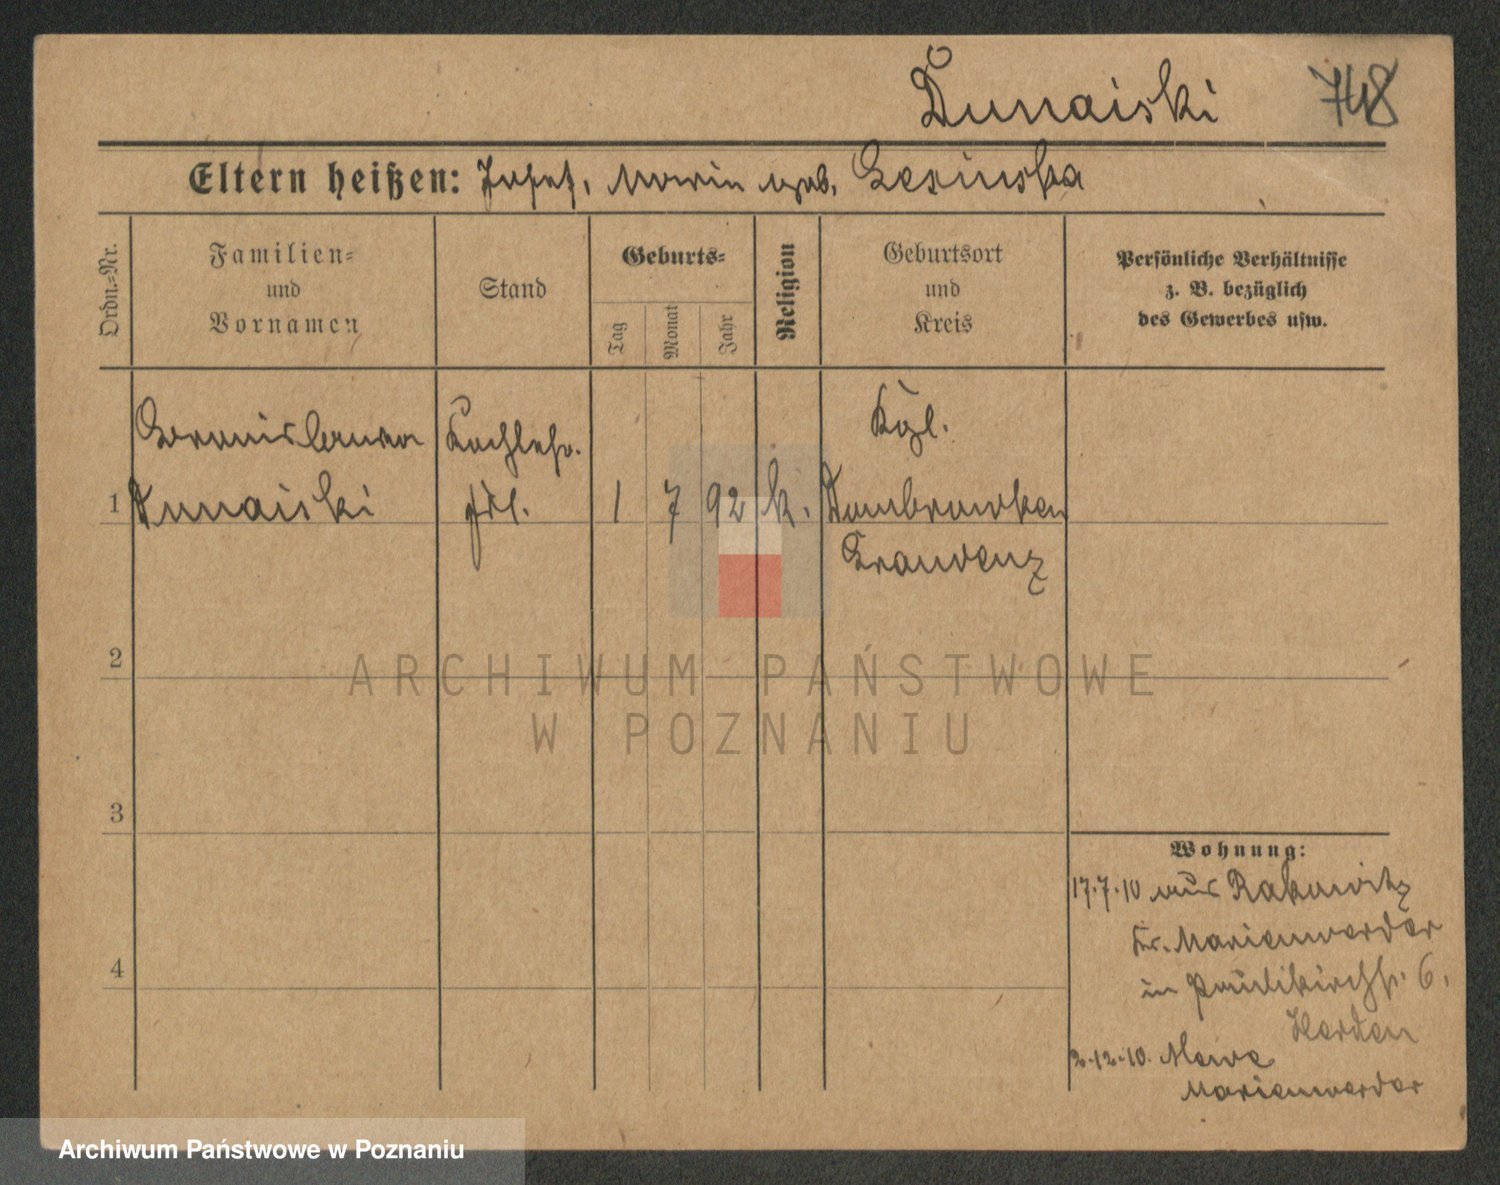 Dunaiski 748
Eltern heißen: Josef, Marie geb. Lesinska
Ordn.-Nr.
Familien-
und
Vornamen
Stand
Geburts-
Tag
Monat
Jahr
Religion
Geburtsort
und
Kreis
Persönliche Verhältnisse
z. B. bezüglich
des Gewerbes usw.
1
Bronislawa
Dunaiski
Kochlehr.
frl.
1 7 92 k.
Kgl.
Dombrowken
Graudenz
2
ARCHIWUM PAŃSTWOWE
W POZNANIU
3
4
Wohnung:
17.7.10 aus Rakowitz
Kr. Marienwerder
in Paulikirchstr. 6.
Harden
2.12.10. Mewe
Marienwerder
Archiwum Państwowe w Poznaniu